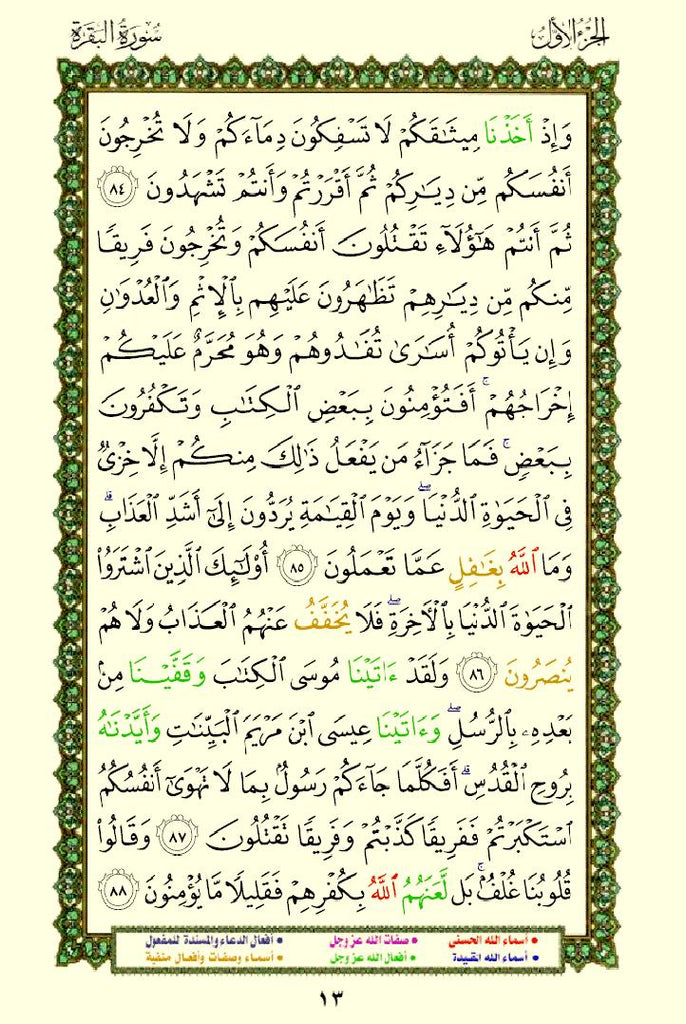 الجزء الأول
سورة البقرة
وَإِذْ أَخَذْنَا مِيثَٰقَكُمْ لَا تَسْفِكُونَ دِمَآءَكُمْ وَلَا تُخْرِجُونَ
أَنفُسَكُم مِّن دِيَٰرِكُمْ ثُمَّ أَقْرَرْتُمْ وَأَنتُمْ تَشْهَدُونَ ٨٤
ثُمَّ أَنتُمْ هَٰٓؤُلَآءِ تَقْتُلُونَ أَنفُسَكُمْ وَتُخْرِجُونَ فَرِيقًا
مِّنكُم مِّن دِيَٰرِهِمْ تَظَٰهَرُونَ عَلَيْهِم بِٱلْإِثْمِ وَٱلْعُدْوَٰنِ
وَإِن يَأْتُوكُمْ أُسَٰرَىٰ تُفَٰدُوهُمْ وَهُوَ مُحَرَّمٌ عَلَيْكُمْ
إِخْرَاجُهُمْ ۚ أَفَتُؤْمِنُونَ بِبَعْضِ ٱلْكِتَٰبِ وَتَكْفُرُونَ
بِبَعْضٍ ۚ فَمَا جَزَآءُ مَن يَفْعَلُ ذَٰلِكَ مِنكُمْ إِلَّا خِزْىٌ
فِى ٱلْحَيَوٰةِ ٱلدُّنْيَا ۖ وَيَوْمَ ٱلْقِيَٰمَةِ يُرَدُّونَ إِلَىٰٓ أَشَدِّ ٱلْعَذَابِ ۗ
وَمَا ٱللَّهُ بِغَٰفِلٍ عَمَّا تَعْمَلُونَ ٨٥ أُو۟لَٰٓئِكَ ٱلَّذِينَ ٱشْتَرَوُا۟
ٱلْحَيَوٰةَ ٱلدُّنْيَا بِٱلْأَخِرَةِ ۖ فَلَا يُخَفَّفُ عَنْهُمُ ٱلْعَذَابُ وَلَا هُمْ
يُنصَرُونَ ٨٦ وَلَقَدْ ءَاتَيْنَا مُوسَى ٱلْكِتَٰبَ وَقَفَّيْنَا مِنۢ
بَعْدِهِۦ بِٱلرُّسُلِ ۖ وَءَاتَيْنَا عِيسَى ٱبْنَ مَرْيَمَ ٱلْبَيِّنَٰتِ وَأَيَّدْنَٰهُ
بِرُوحِ ٱلْقُدُسِ ۗ أَفَكُلَّمَا جَآءَكُمْ رَسُولٌۢ بِمَا لَا تَهْوَىٰٓ أَنفُسُكُمُ
ٱسْتَكْبَرْتُمْ فَفَرِيقًا كَذَّبْتُمْ وَفَرِيقًا تَقْتُلُونَ ٨٧ وَقَالُوا۟
قُلُوبُنَا غُلْفٌۢ ۚ بَل لَّعَنَهُمُ ٱللَّهُ بِكُفْرِهِمْ فَقَلِيلًا مَّا يُؤْمِنُونَ ٨٨
• أسماء الله الحسنى • صفات الله عز وجل • أفعال الدعاء والمسندة للمفعول
• أسماء الله المقيدة • أفعال الله عز وجل • أسماء وصفات وأفعال منفية
١٣